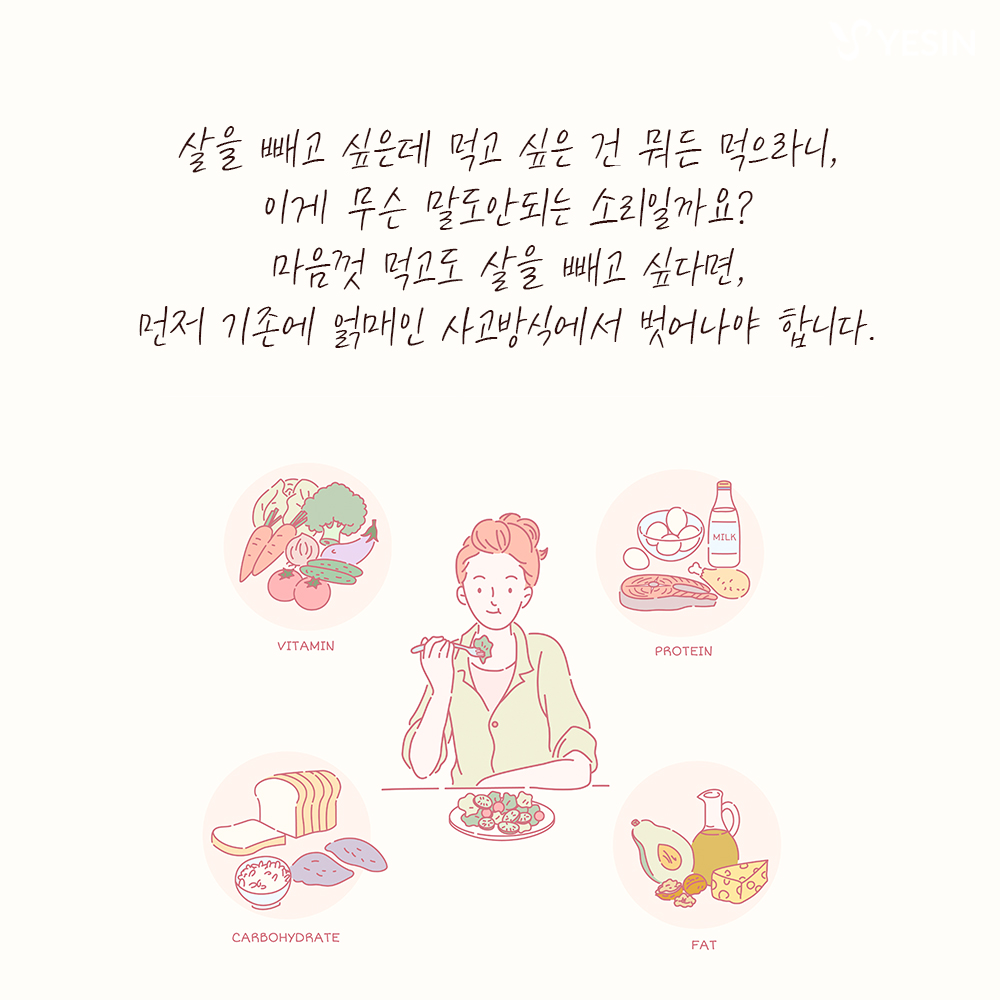 YESIN
살을 빼고 싶은데 먹고 싶은 건 뭐든 먹으라니,
이게 무슨 말도안되는 소리일까요?
마음껏 먹고도 살을 빼고 싶다면,
먼저 기존에 얽매인 사고방식에서 벗어나야 합니다.
MILK
VITAMIN
PROTEIN
CARBOHYDRATE
FAT